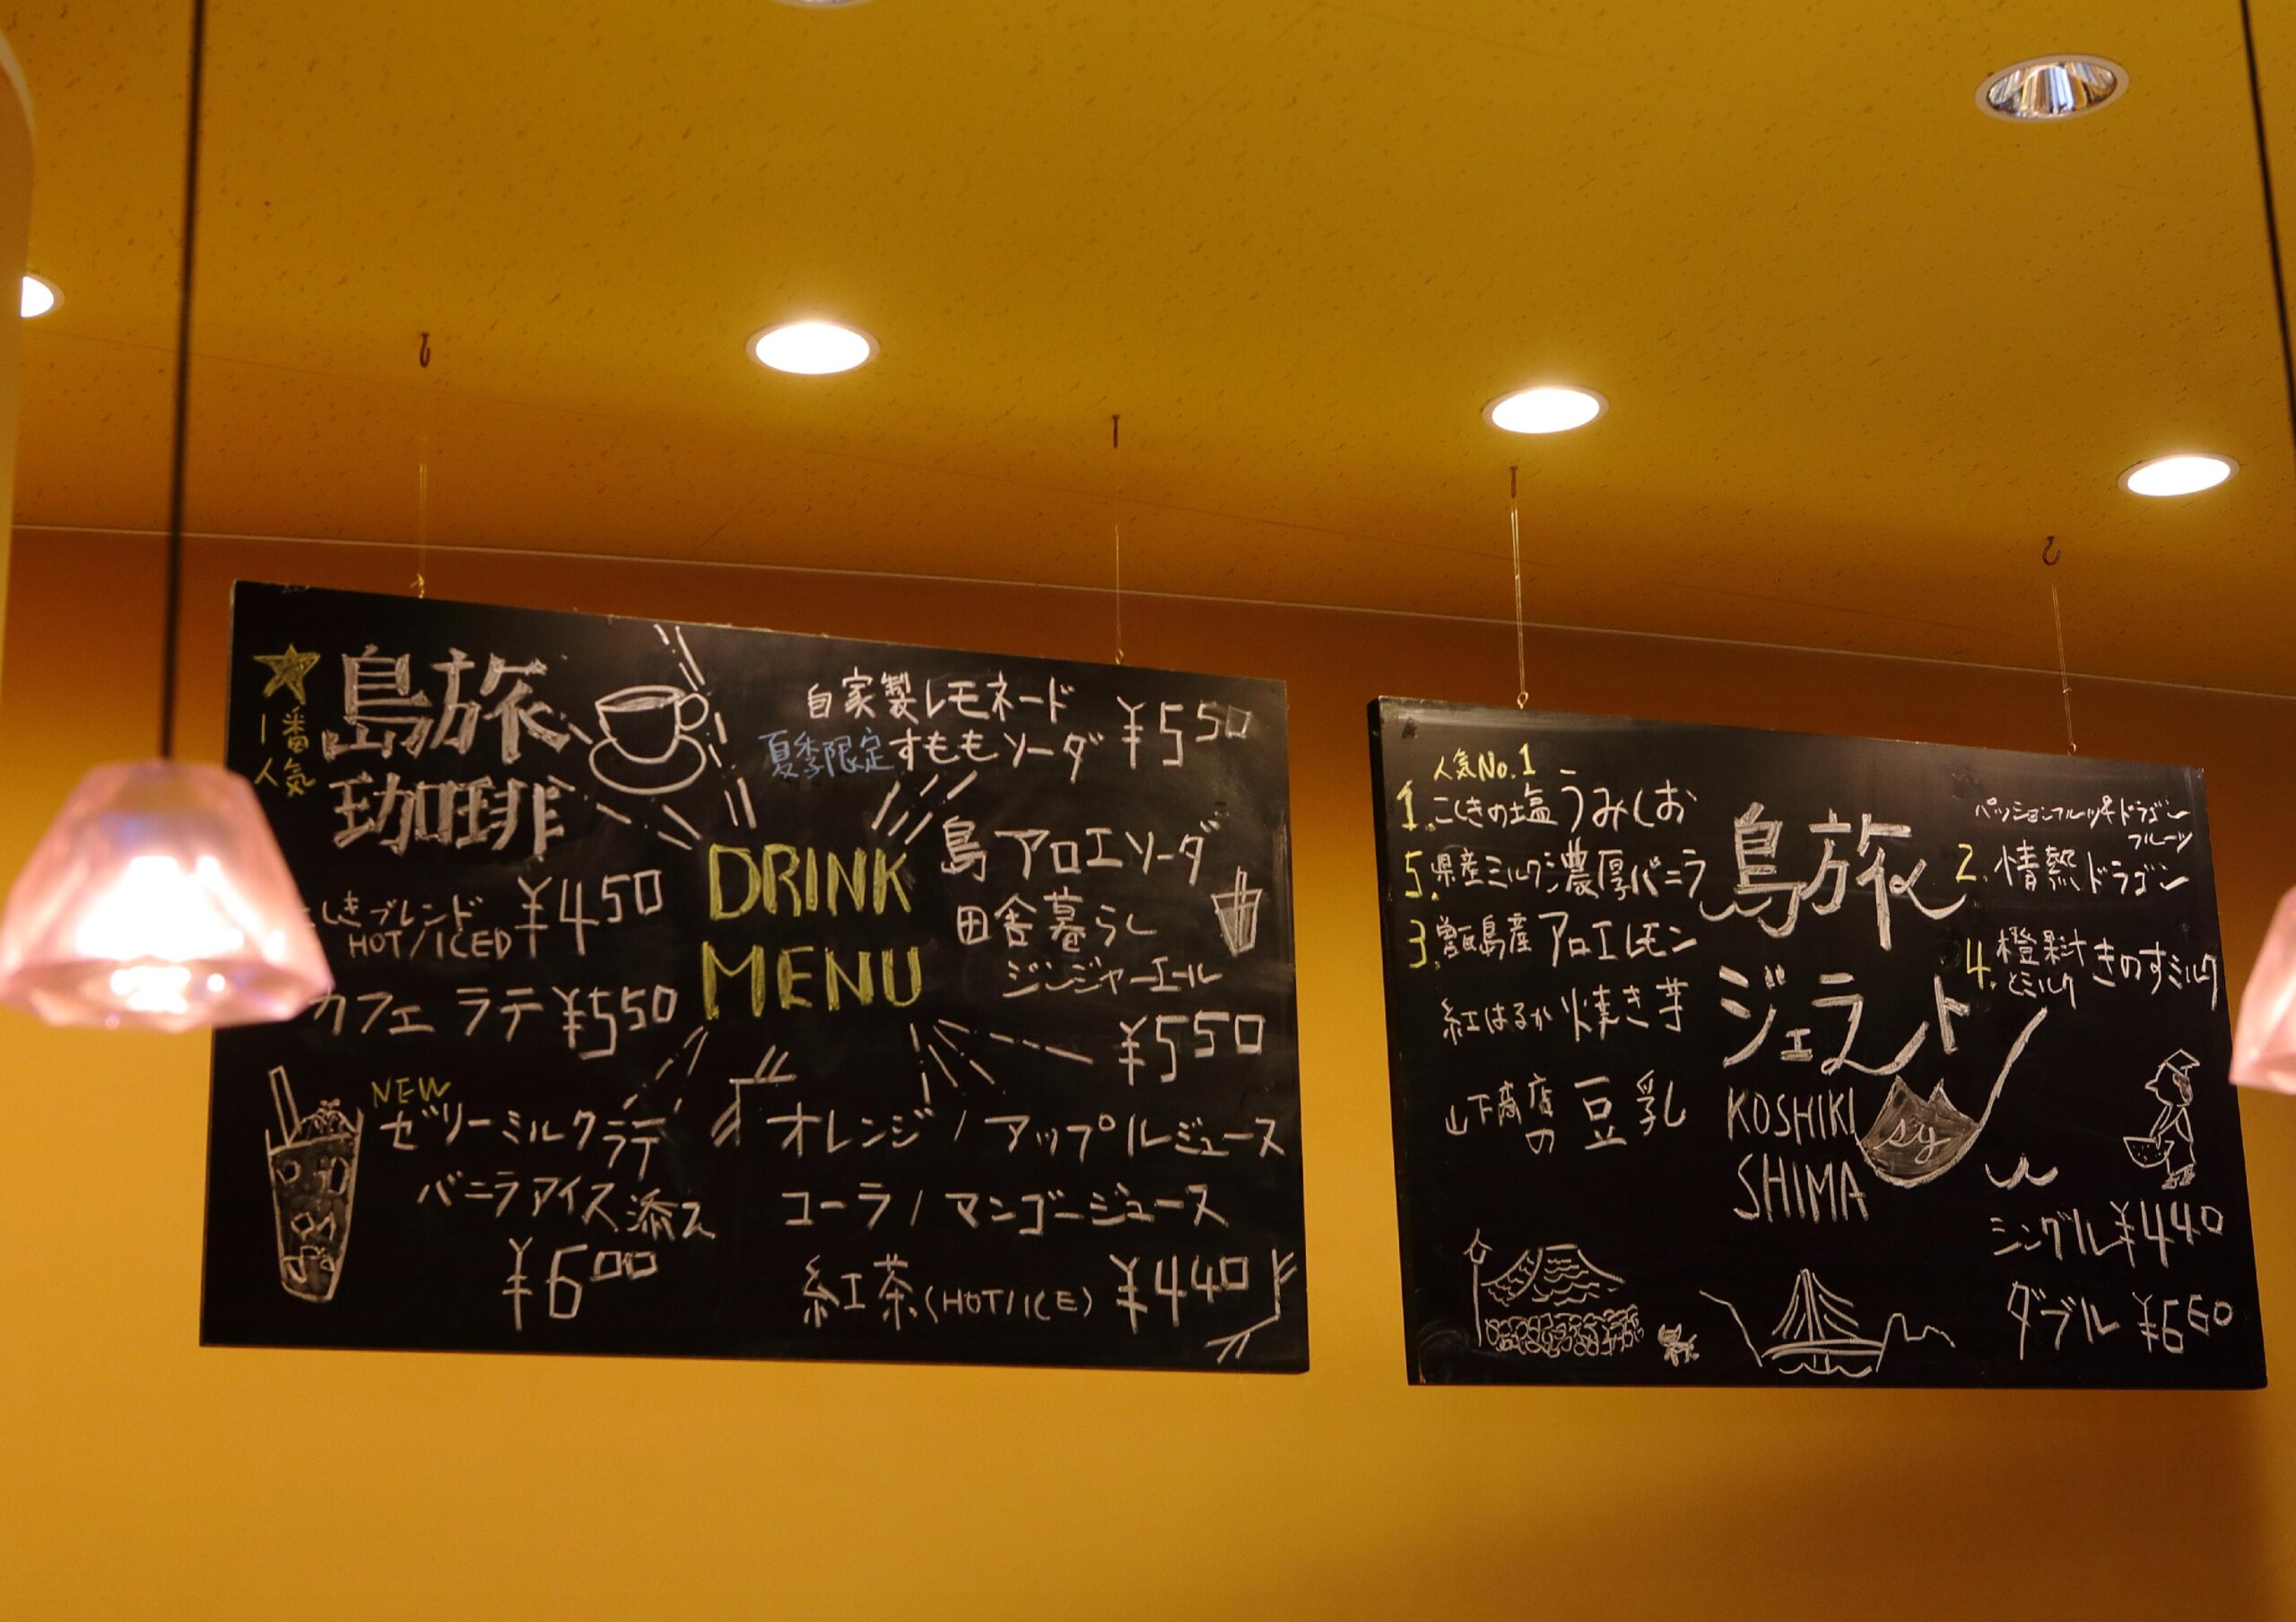 1番
人気
島旅
珈琲
しきブレンド
HOT/ICED
¥450
カフェ ラテ ¥550
NEW
ゼリーミルクラテ
バニラアイス添え
¥600
DRINK
MENU
自家製レモネード
夏季限定 すももソーダ
¥550
島アロエソーダ
田舎暮らし
ジンジャーエール
¥550
オレンジ/アップルジュース
コーラ/マンゴージュース
紅茶(HOT/ICE) ¥440
人気No.1
1. こしきの塩 うみしお
5. 県産ミルク 濃厚バニラ
3. 甑島産 アロエレモン
紅はるか 焼き芋
山下商店の 豆乳
島旅
ジェラート
KOSHIKI
SHIMA
sy
パッションフルーツ&ドラゴン
フルーツ
2. 情熱ドラゴン
4. 橙果汁とミルク きのすミルク
シングル ¥440
ダブル ¥660